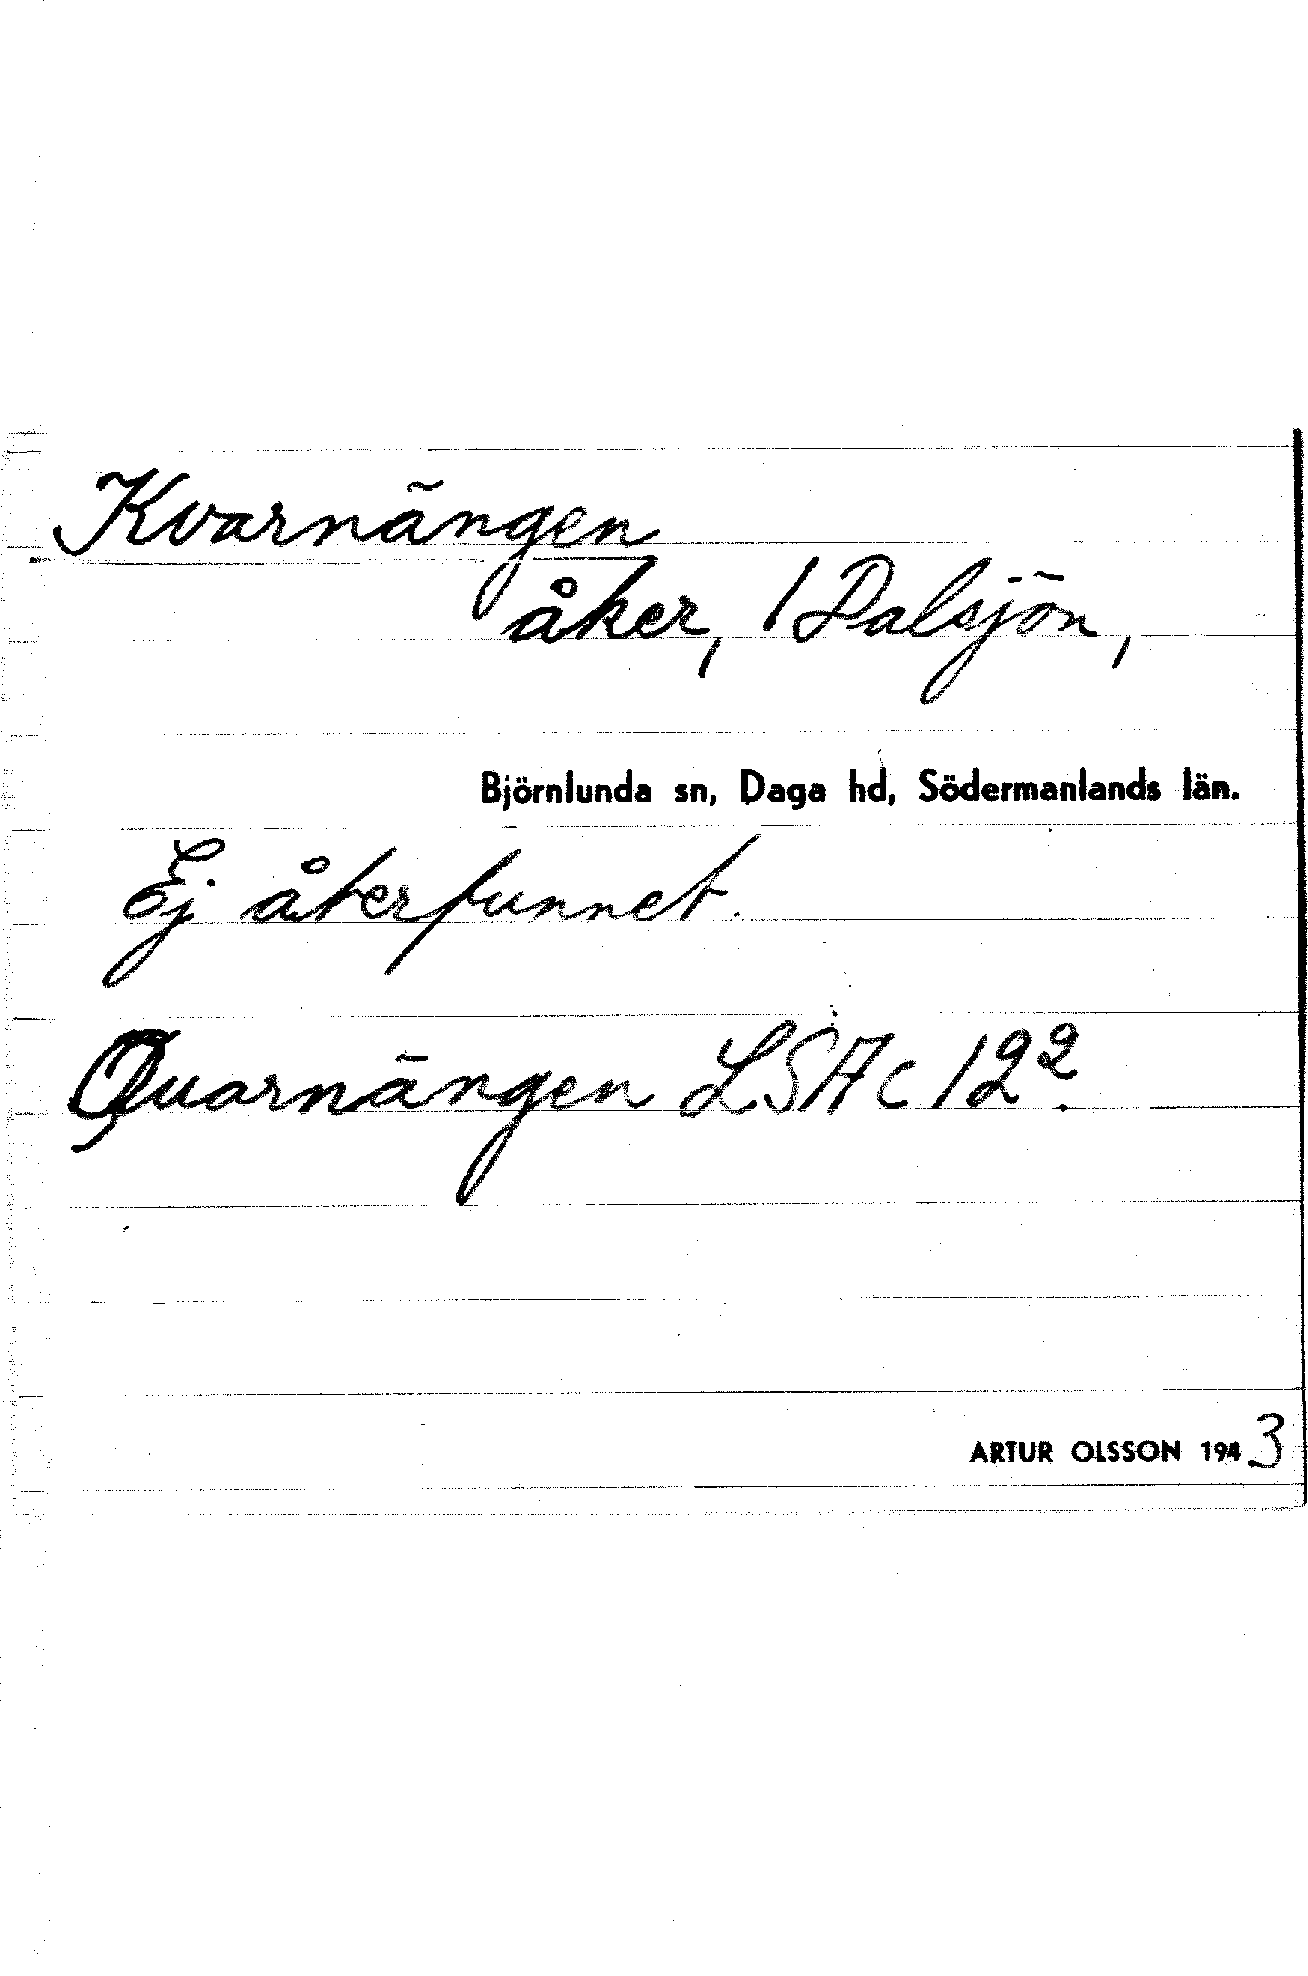 Kvarnängen
åker, / Dalsjön,
Björnlunda sn, Daga hd, Södermanlands län.
Ej återfunnet.
Quarnängen LSA c 12².
ARTUR OLSSON 1943